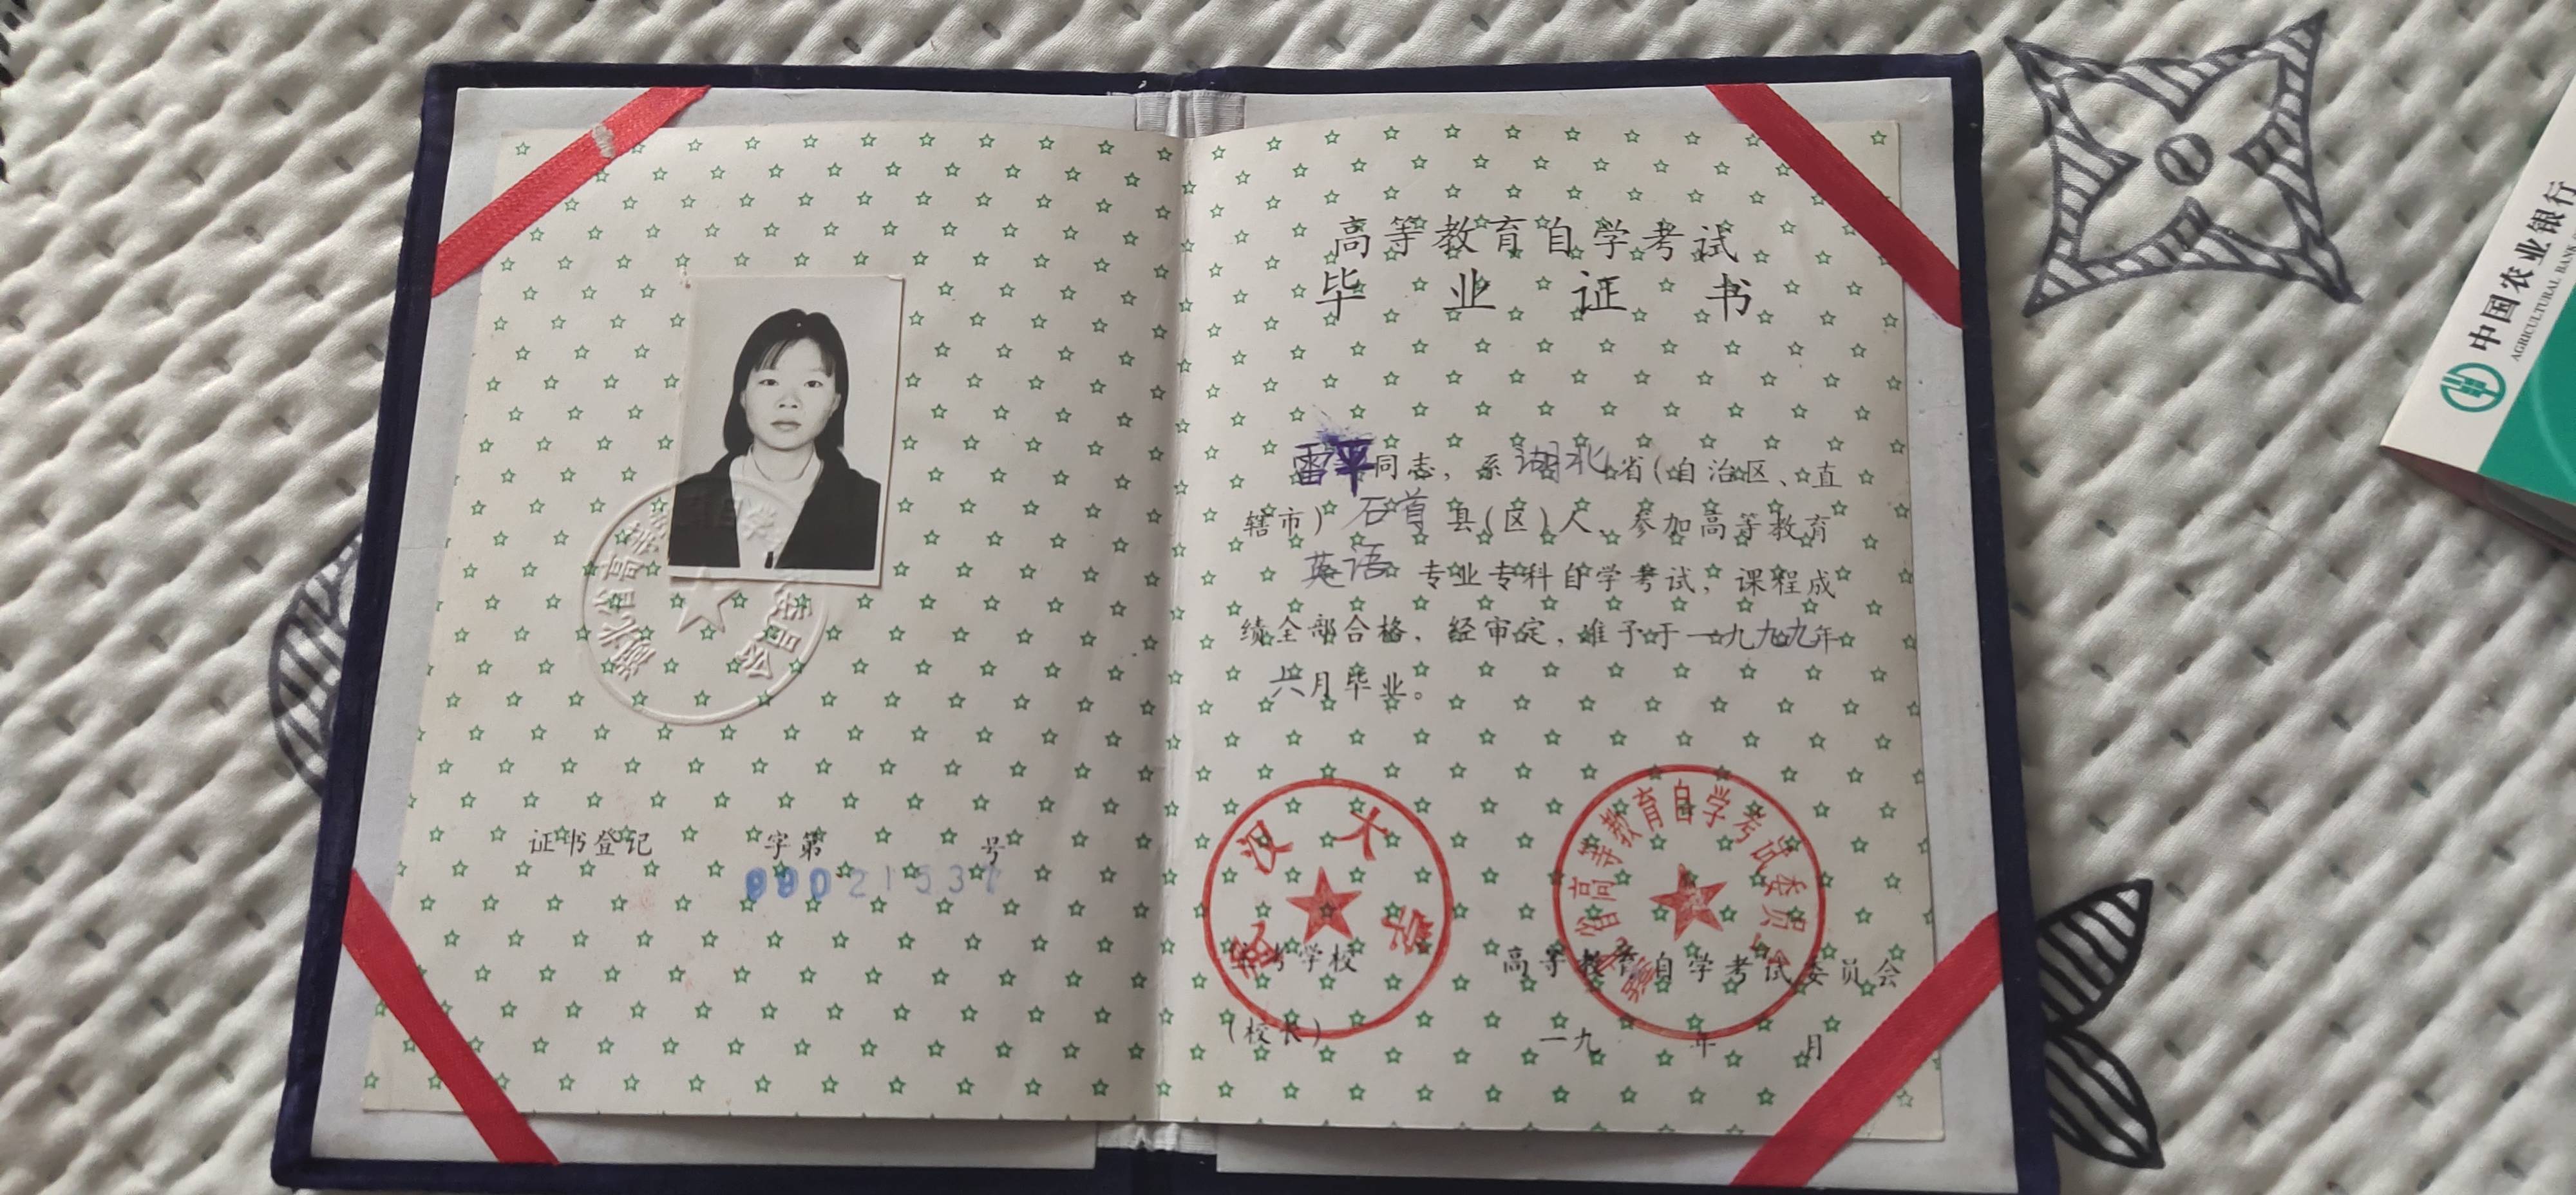 湖北省高等教育自学考试委员会
证书登记 字第 号
高等教育自学考试
毕 业 证 书
雷平同志，系湖北省(自治区、直
辖市) 石首 县(区)人、参加高等教育
英语 专业专科自学考试，课程成
绩全部合格，经审定，准予于一九九九年
六月毕业。
武汉大学
主考学校
(校长)
湖北省高等教育自学考试委员会
高等教育自学考试委员会
一九 年 月
中国农业银行
AGRICULTURAL BANK